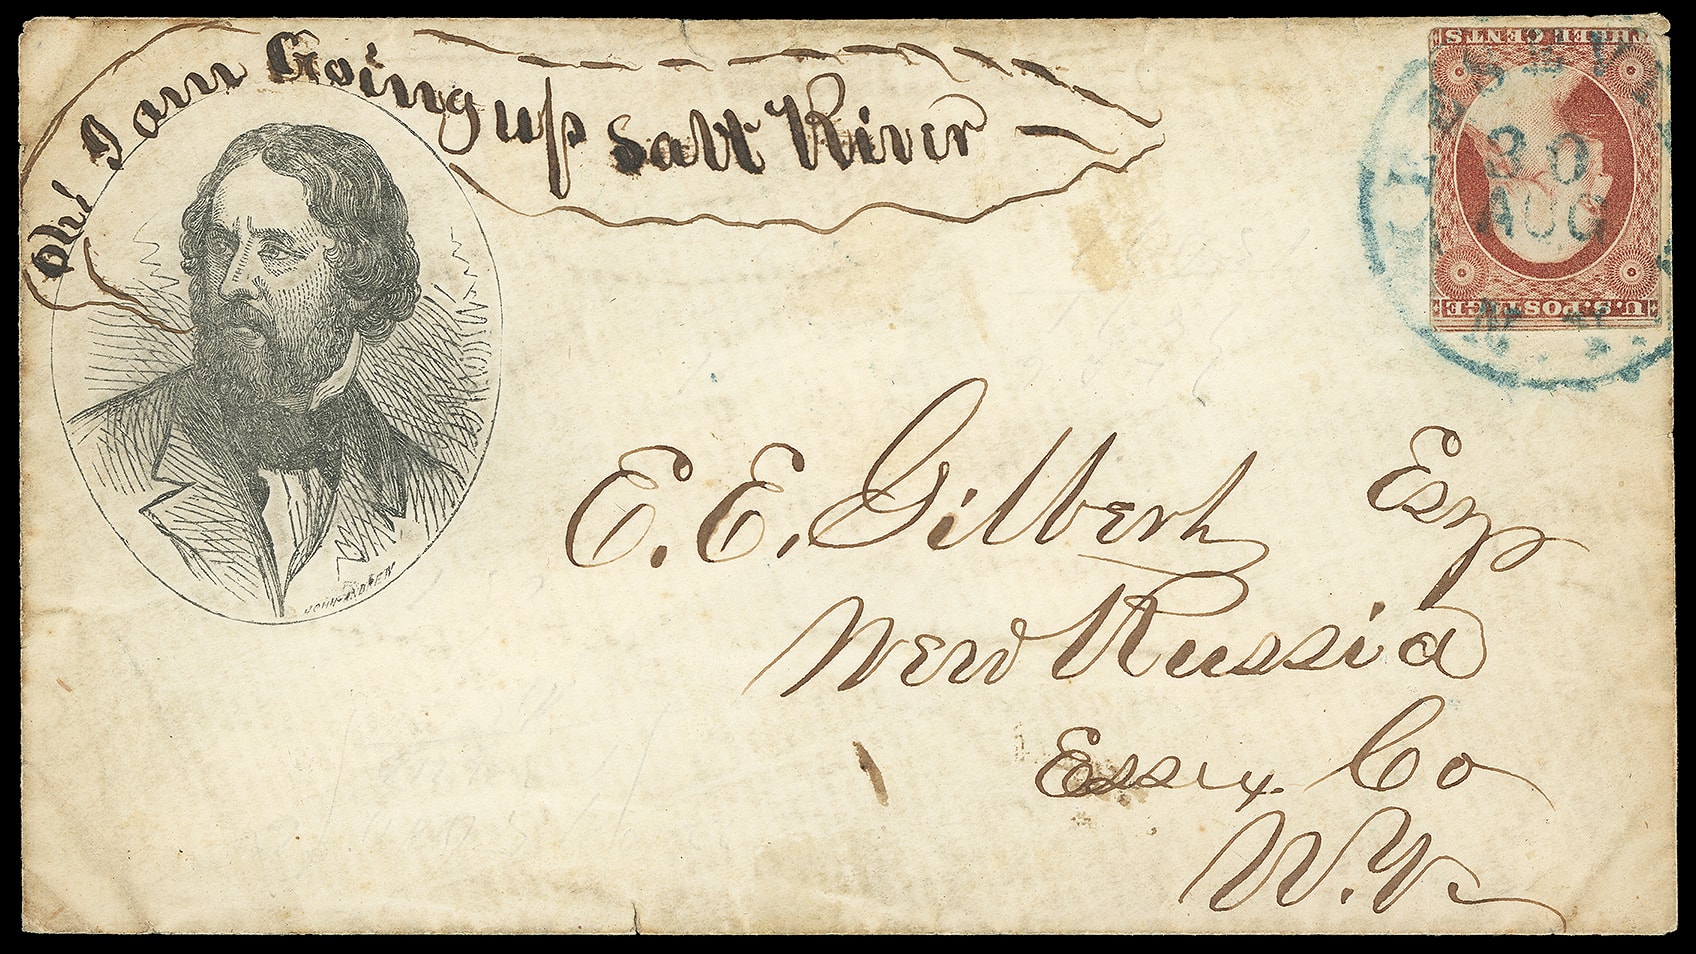 Oh! I am Going up Salt River
THREE CENTS
30
AUG
U.S. POSTAGE
N.Y.
JOHN ANDREW
E. E. Gilbert Esqr
New Russia
Essex. Co
N.Y.